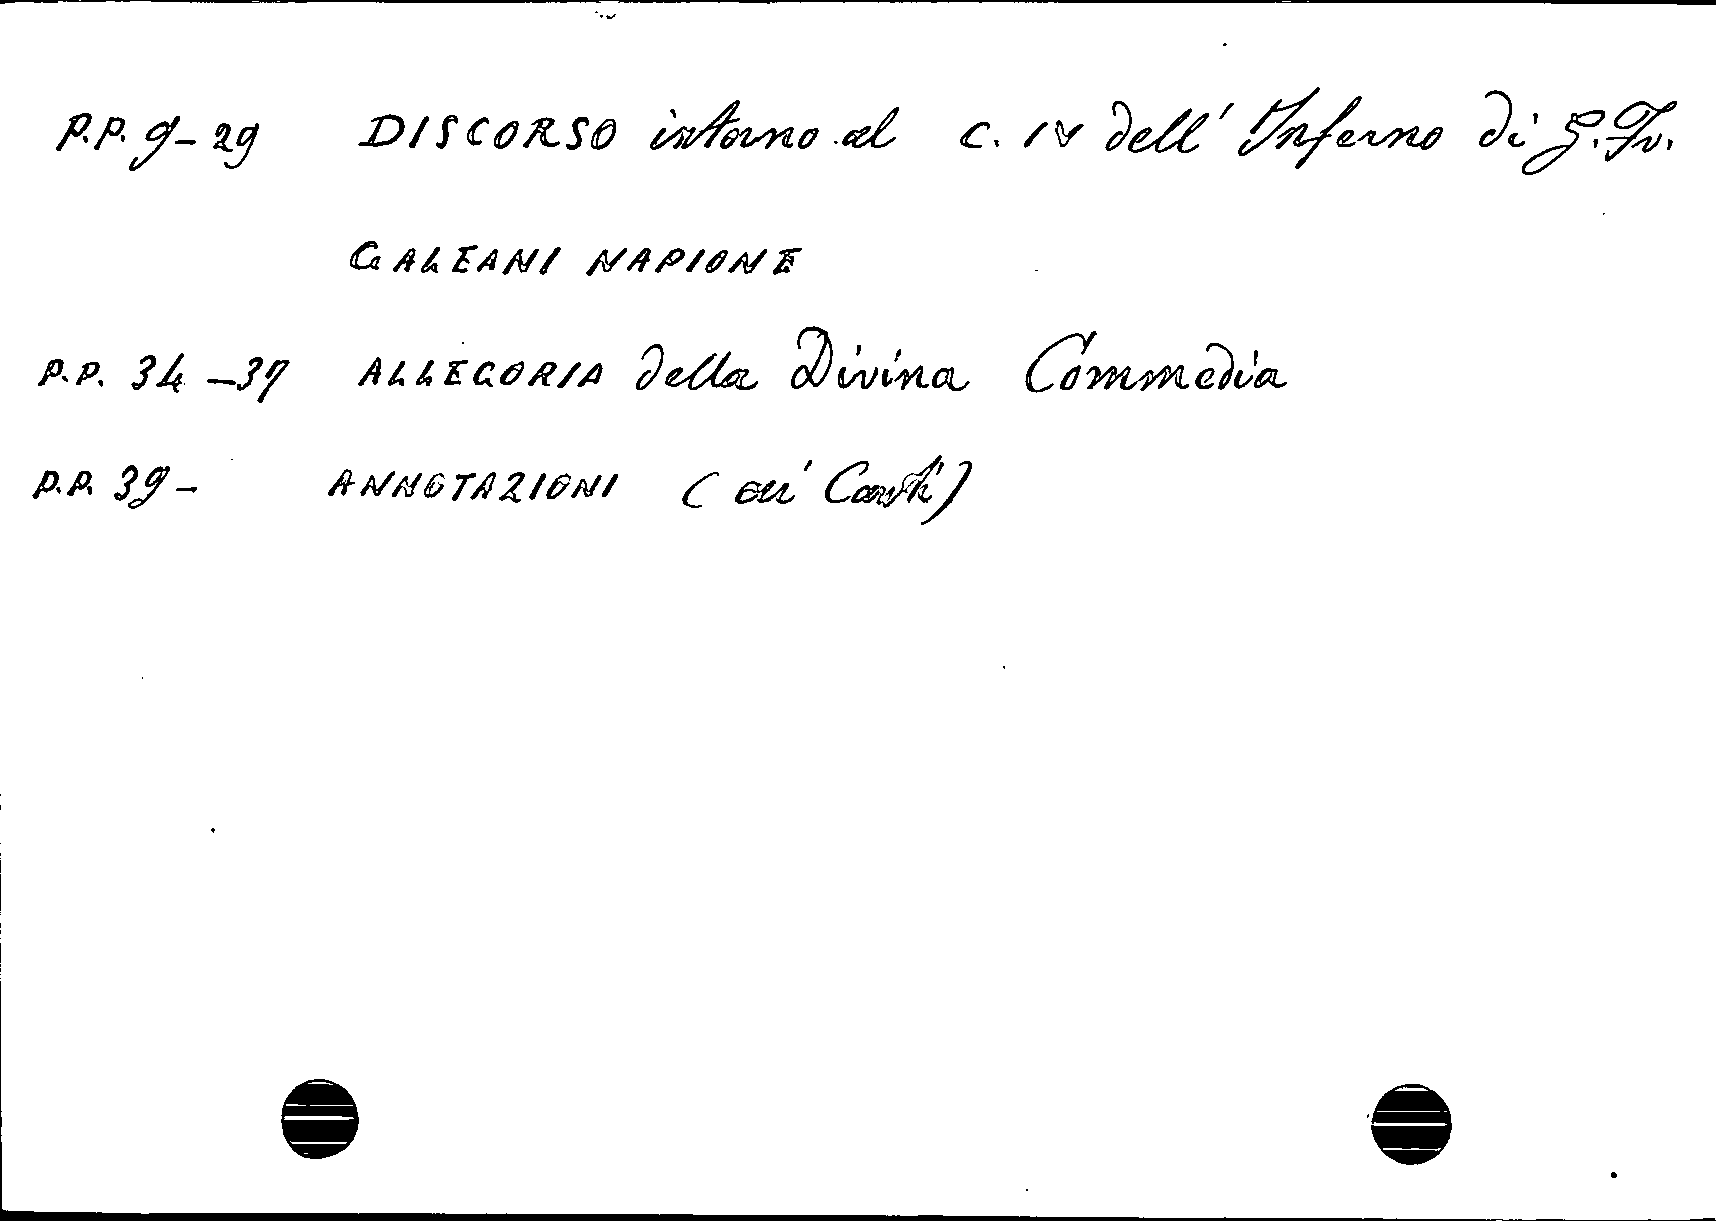 P.P. 9-29 DISCORSO intorno al c. IV dell'Inferno di G. Fr.
GALEANI NAPIONE
P.P. 34-37 ALLEGORIA della Divina Commedia
P.P. 39- ANNOTAZIONI (ai Canti)